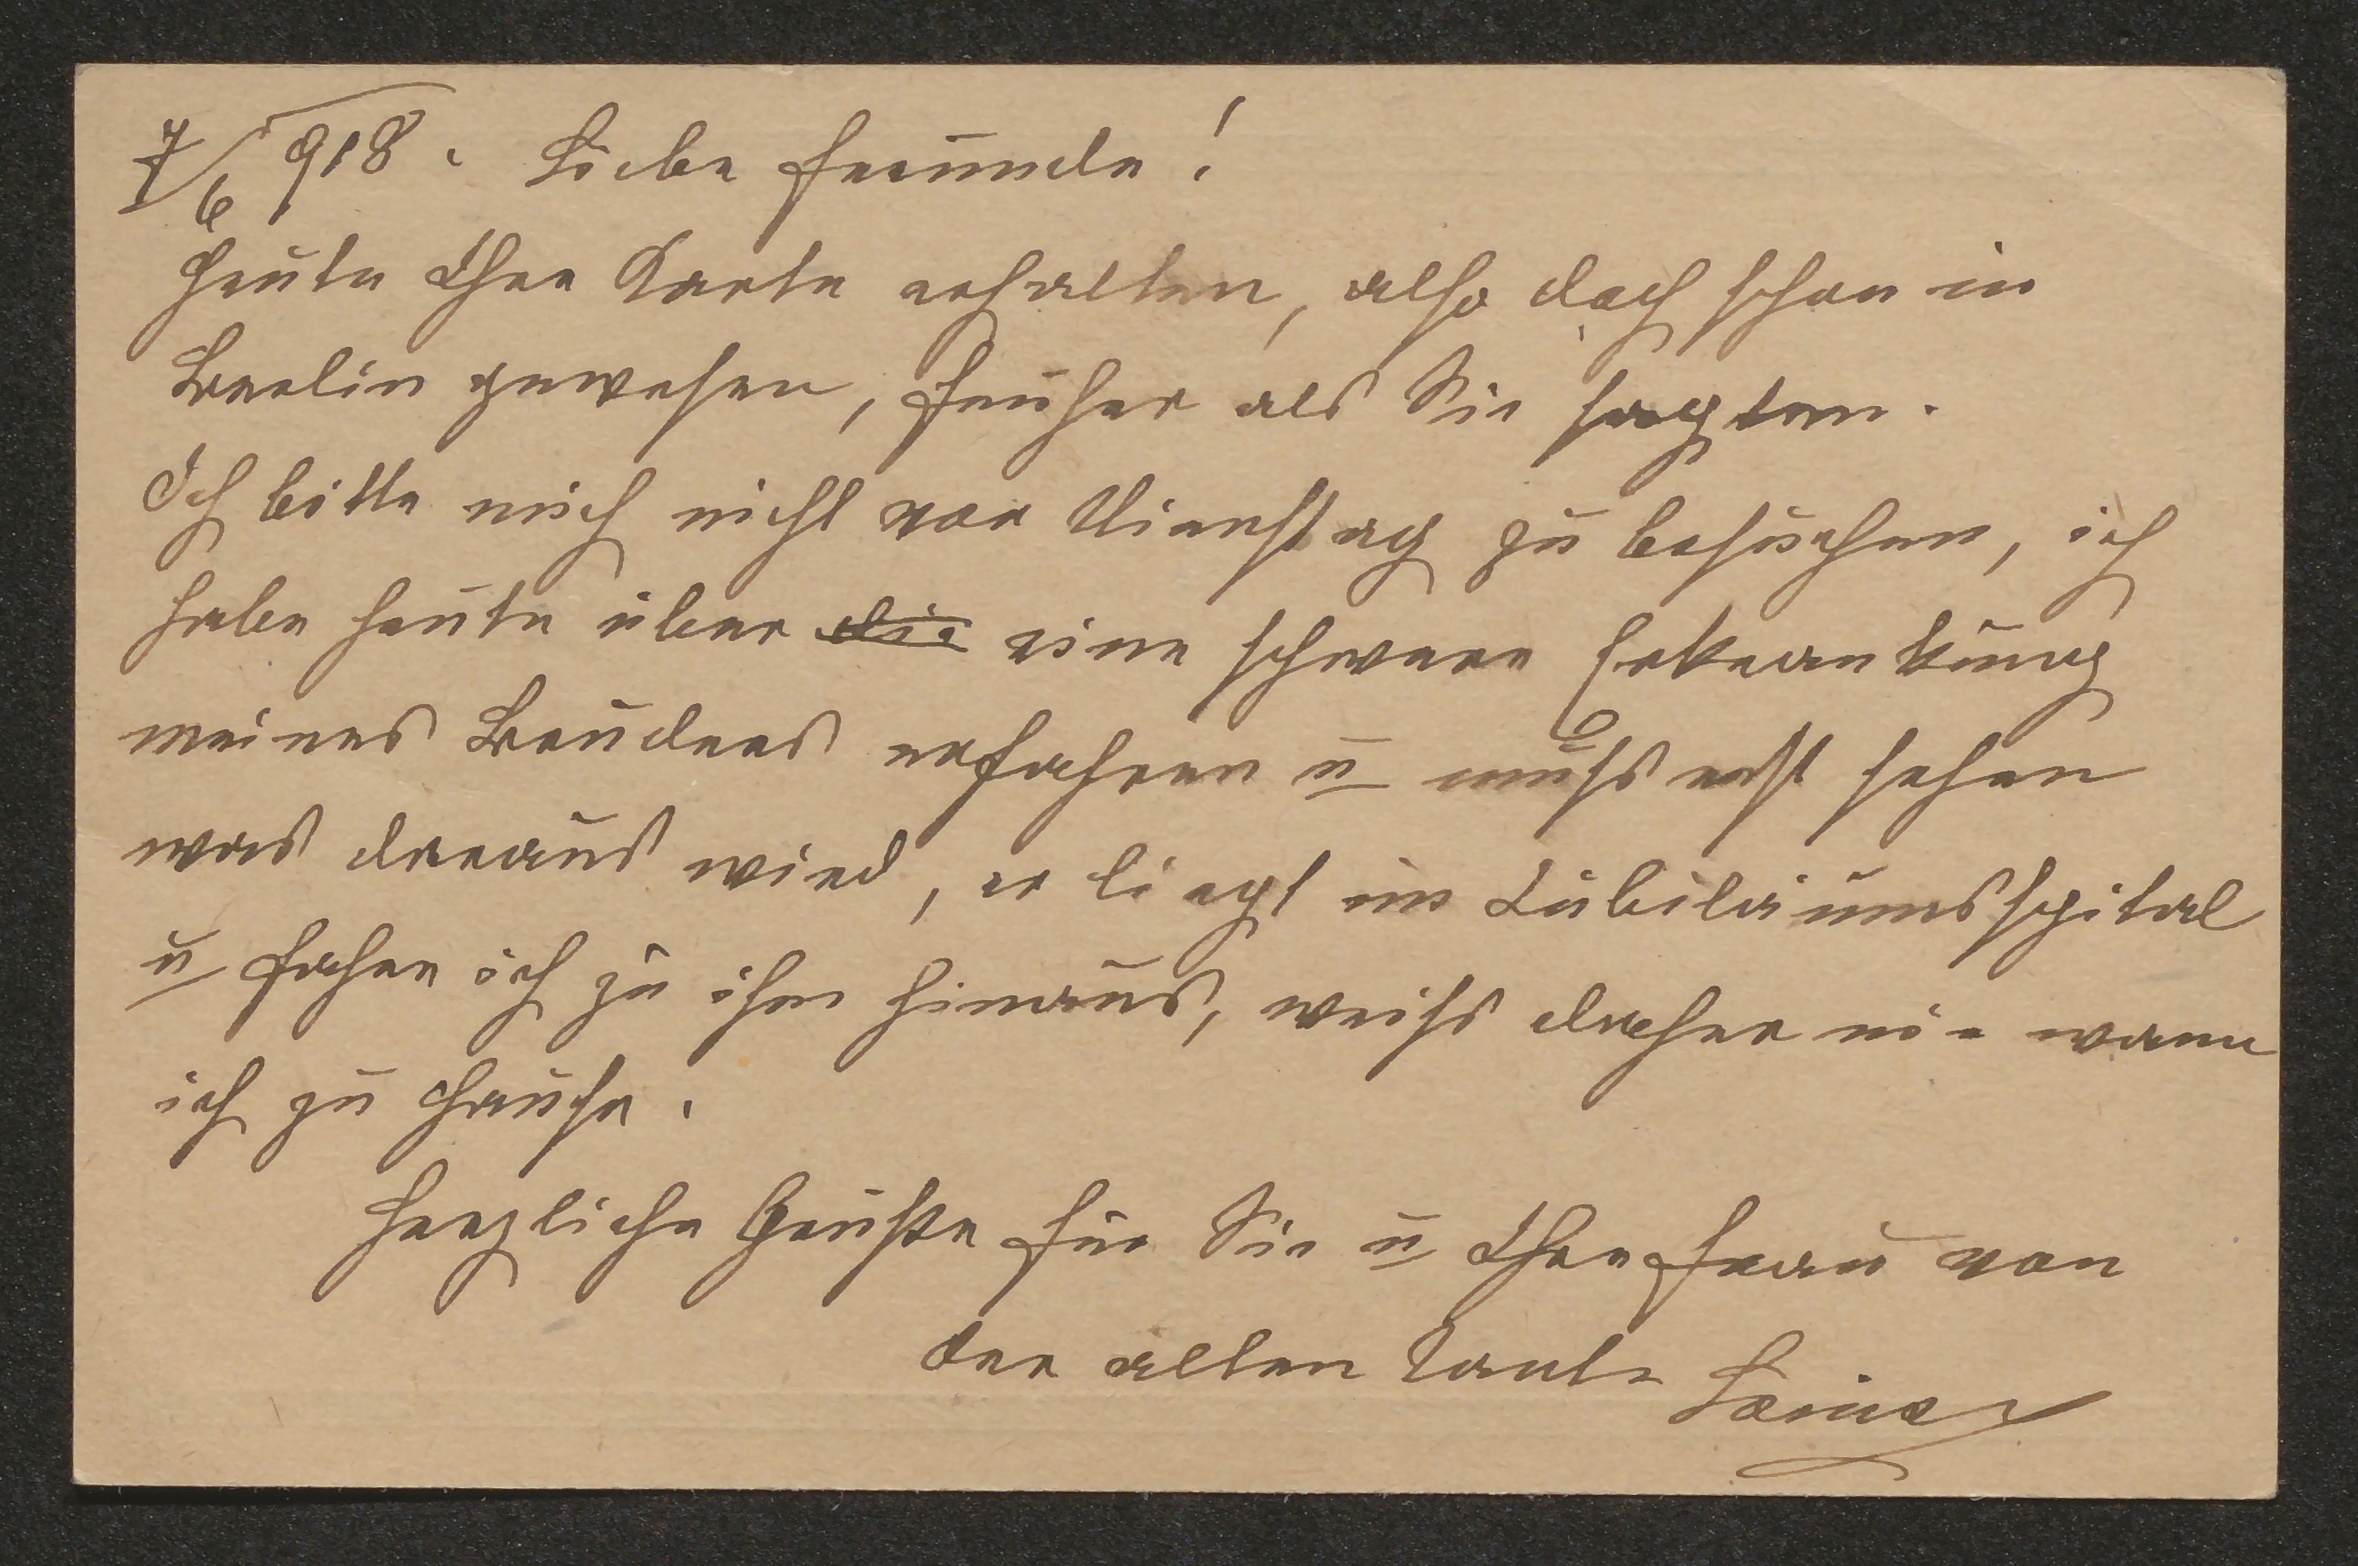 7/6 918. Liebe Freunde!
Heute Ihre Karte erhalten, also doch schon in
Berlin gewesen, früher als Sie sagten.
Ich bitte mich nicht vor Dienstag zu besuchen, ich
habe heute über die eine schwere Erkrankung
meines Bruders erfahren u muß erst sehen
was daraus wird, er liegt im Jubiläumsspital
u fahre ich zu ihm hinaus, weiß daher nie wann
ich zu Hause.
Herzliche Grüße für Sie u Ihre Frau von
der alten Tante